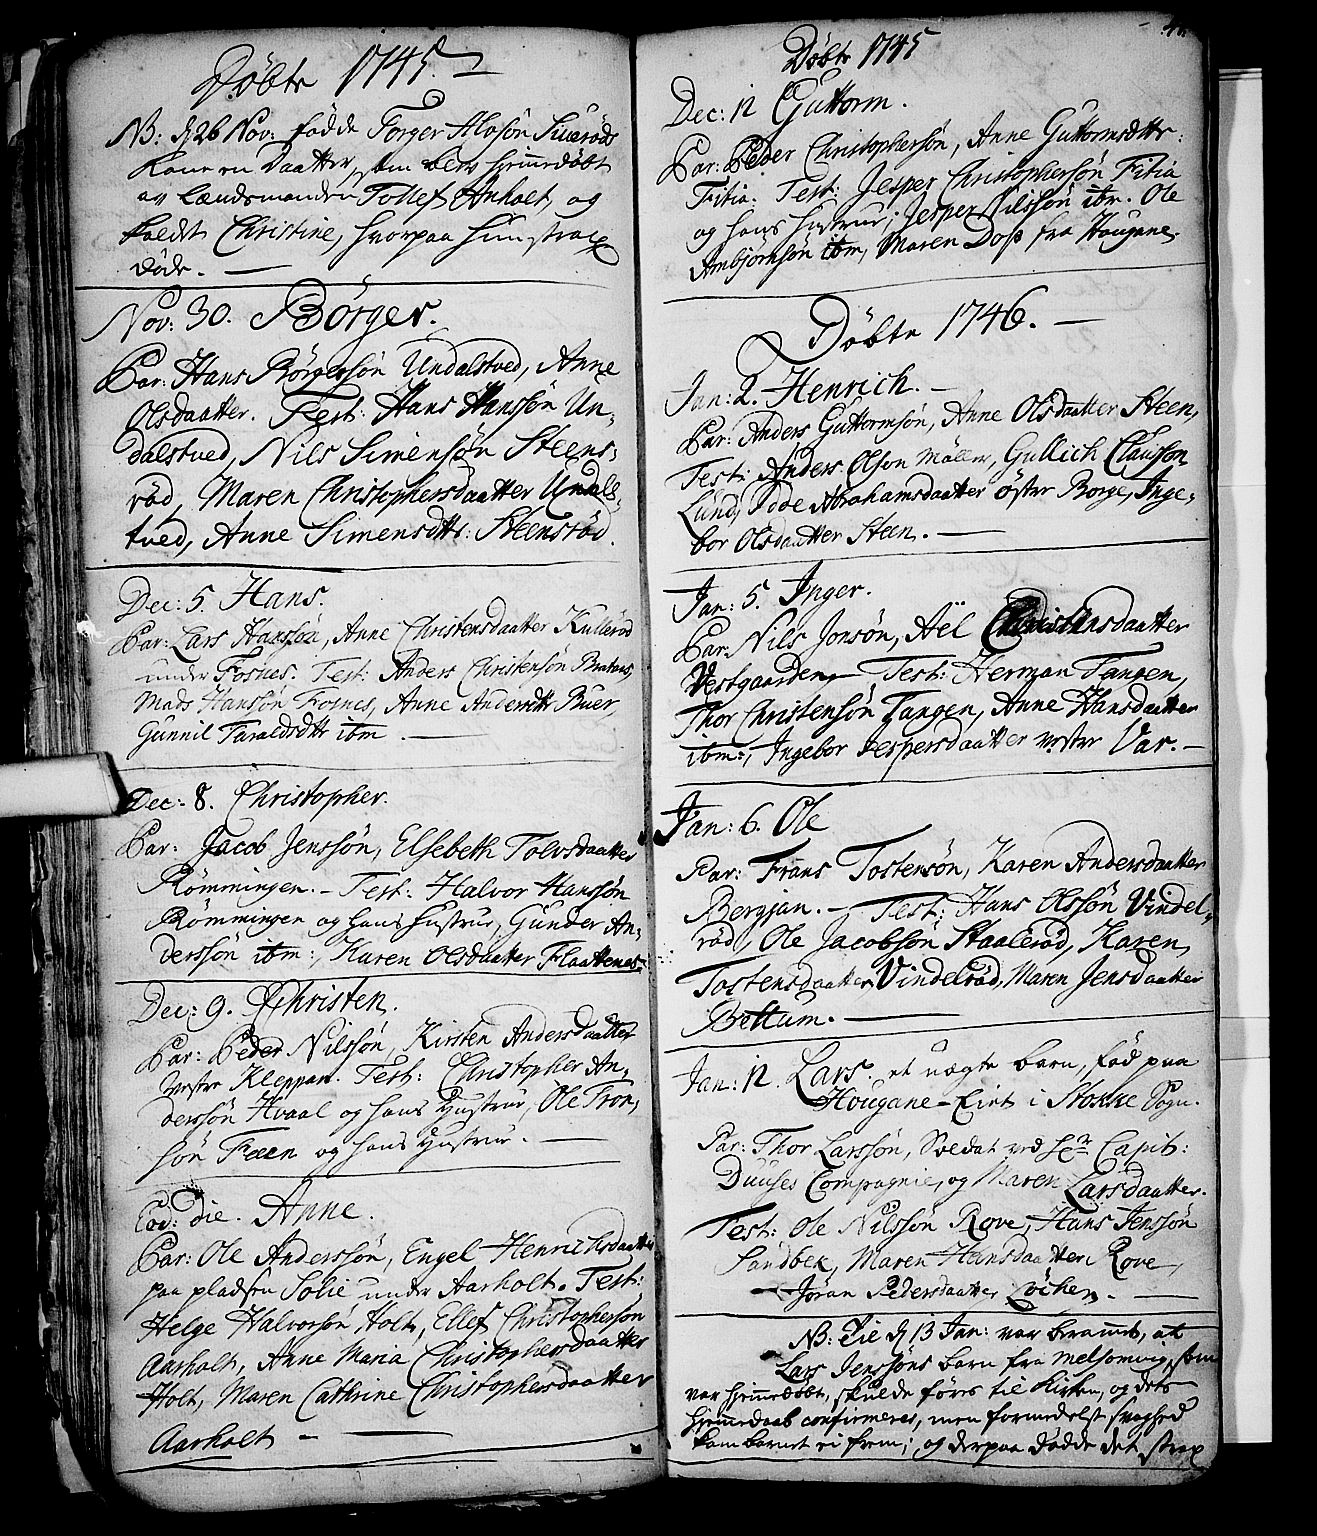 Döbte 1745.
NB: d 26 Nov: fødde Torger Olssön
Kone en Daatter, som blev hjemmedøbt
av Lændsmanden Tollef Anholt, og
kaldt Christine, hvorpaa hun strax
døde. —
Nov: 30. Börger.
Par: Hans Börgerssön Undalstved, Anne
Olsdaatter. Test: Hans Hanssön Un-
dalstved, Nils Simensön Steens-
röd, Maren Christophersdaatter Undals-
tved, Anne Simensdttr: Steensröd.
Dec: 5. Hans.
Par: Lars Hanssön, Anne Christensdaatter Kulleröd
under Fosnes. Test: Anders Christensön
Mads Hansön Fosnes, Anne Andersdttr Buer,
Gunnil Taraldsdttr ibm. —
Dec: 8. Christopher.
Par: Jacob Jenssön, Elsebeth Tolvsdaatter
Römmingen. – Test: Halvor Hanssön
Römmingen og hans hustrue, Gunder An-
derssön ibm:, Karen Olsdaatter Flaattenes-
Dec: 9. Christen.
Par: Peder Nilssön, Kirsten Andersdaatter
vestre Kleppan. Test: Christopher An-
derssön Hvaal og hans Hustrue, Ole Tron-
sön Feen og hans Hustrue. —
Eod: die. Anne.
Par: Ole Anderssön, Engel Henrichsdaatter
paa pladsen Solie under Aarholt. Test:
Helge Halvorsön Holt, Ellef Christophersön
Aarholt, Anne Maria Christophersdaatter
Holt, Maren Cathrine Christophersdaatter
Aarholt —
Döbte 1745
Dec: 12 Guttorm.
Par: Peder Christophersön, Anne Guttormsdttr:
Fitia. Test: Jesper Christophersön Fitia
og hans hustrue; Jesper Nilssön ibm. Ole
Arnbjörnsön ibm, Maren Doss fra Haugane.
Döbte 1746. —
Jan: 2. Henrich. –
Par: Anders Guttormsön, Anne Olsdaatter Steen,
Test: Anders Olson Möller, Gullich Clausson
Lund, Abrahamsdaatter öster Borge, Inge-
bor Olsdaatter Steen. —
Jan: 5. Inger.
Par: Nils Jonsön, Aël Christensdaatter
Vestgaarden, Test: Herman Tangen,
Thor Christensön Tangen, Anne Hansdaatter
ibm:, Ingebor Jespersdaatter vester Var. –
Jan: 6. Ole
Par: Frans Tostensön, Karen Andersdaatter
Bergjan. – Test: Hans Olssön Vindel-
röd, Ole Jacobsön Staaleröd, Karen
Tostensdaatter Vindelröd, Maren Jensdaatter
Bettum. —
Jan: 12. Lars. et uægte barn, fød paa
Hougane-Eiet i Stokke Sogn.
Par: Thor Larssön, Soldat ved Hr: Capit:
Duuses Compagnie, og Maren Larsdaatter.
Test: Ole Nilssön Rove, Hans Jenssön
Sandbek, Maren Hansdaatter Rove,
Jöran Pedersdaatter Löcken. —
NB: Die d 13 Jan: var berammet, at
Lars Jenssöns barn fra Melsomvig, som
var hjemmedøbt, skulde føres til Kirken, og dets
hjemmedaab confirmeres, men formedelst svaghed
kom barnet ei frem; og derpaa døde det strax